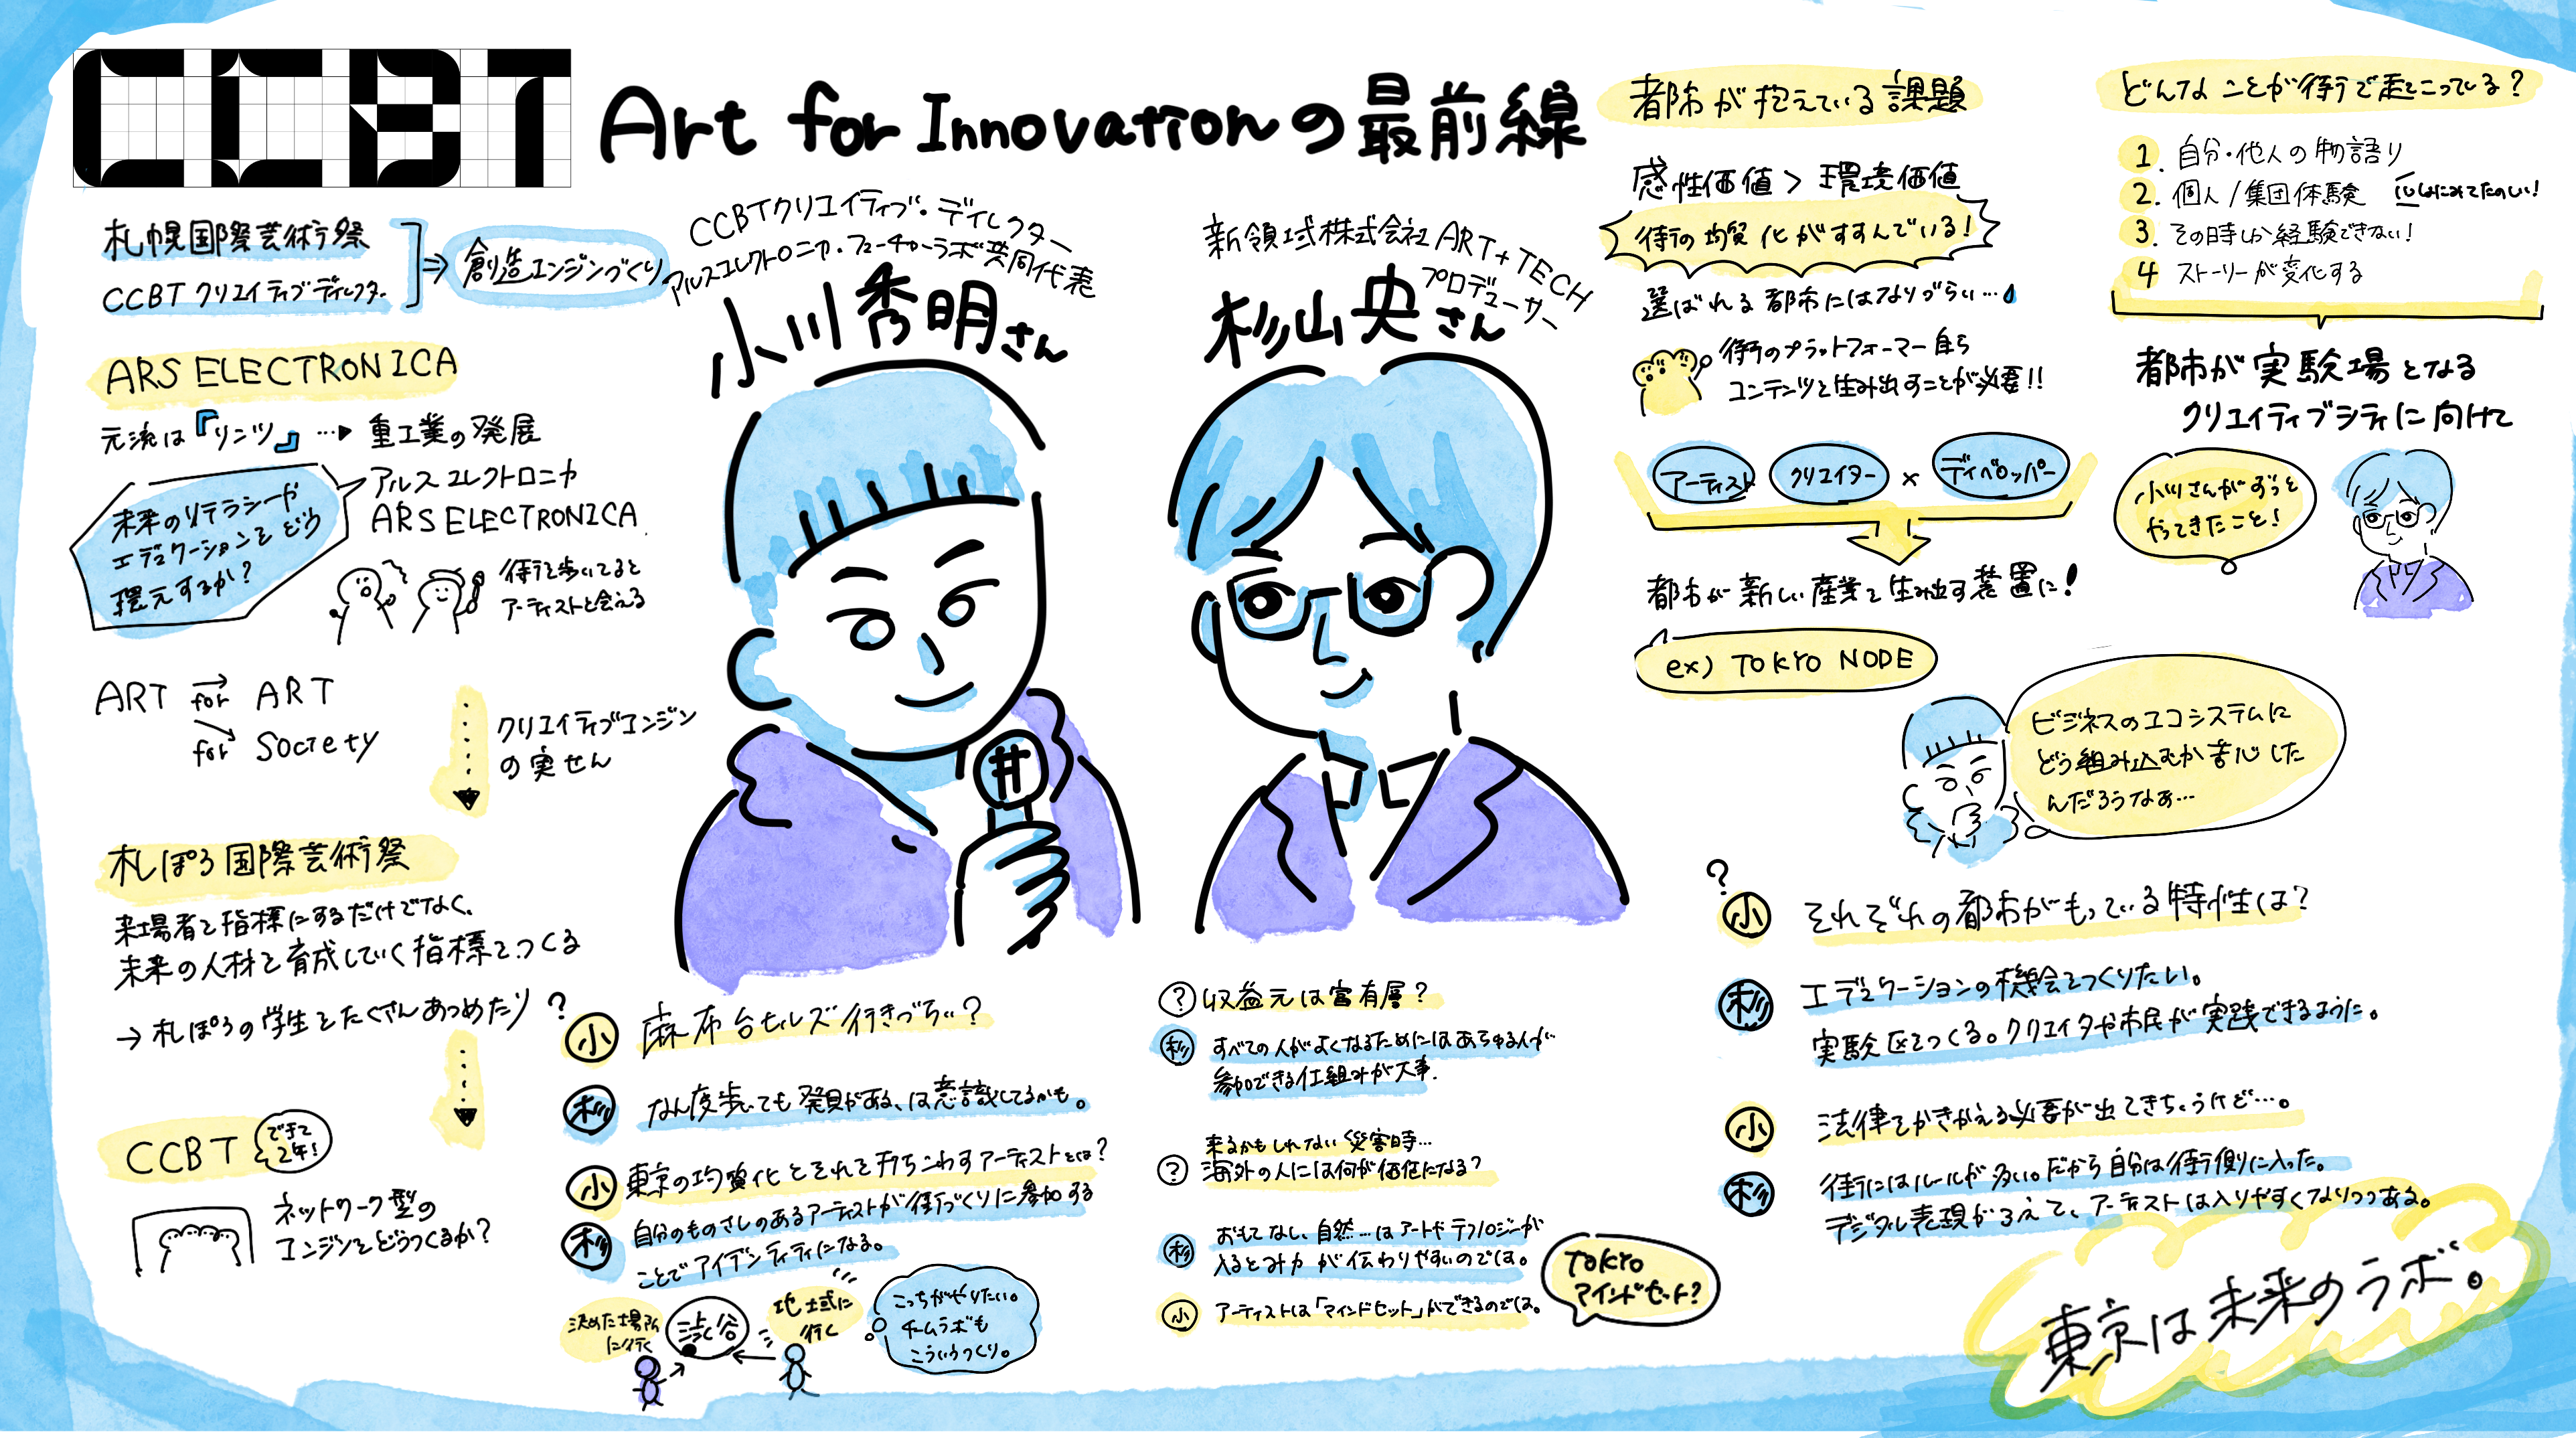 CCBT
Art for Innovationの最前線
札幌国際芸術祭
CCBT クリエイティブディレクター
創造エンジンづくり
ARS ELECTRONICA
元流は『リンツ』…▶ 重工業の発展
未来のリテラシーや
エデュケーションをどう
還元するか?
アルスエレクトロニカ
ARS ELECTRONICA
街を歩いてると
アーティストと会える
ART for ART
for Society
クリエイティブエンジン
の実せん
札ぽろ国際芸術祭
来場者を指標にするだけでなく、
未来の人材を育成していく指標をつくる
→ 札ぽろの学生をたくさんあつめたり
CCBT
できて
2年!
ネットワーク型の
エンジンをどうつくるか?
CCBTクリエイティブ・ディレクター
アルスエレクトロニカ・フューチャーラボ共同代表
小川秀明さん
新領域株式会社 ART+TECH
プロデューサー
杉山央さん
?
小 麻布台ヒルズ行きづらい?
杉 なん度歩いても発見がある、は意識してるかも。
小 東京の均質化とそれを打ちこわすアーティストとは?
杉 自分のものさしのあるアーティストが街づくりに参加する
ことでアイデンティティになる。
決めた場所
に行く
渋谷
地域に
行く
こっちがやりたい。
チームラボも
こういうつくり。
? 収益元は富有層?
杉 すべての人がよくなるためにはあらゆる人が
参加できる仕組みが大事.
来るかもしれない災害時…
? 海外の人には何が価値になる?
杉 おもてなし、自然…はアートやテクノロジーが
入るとみ力が伝わりやすいのでは。
小 アーティストは「マインドセット」ができるのでは。
TOKYO
マインドセット?
都市が抱えている課題
感性価値 > 環境価値
街の均質化がすすんでいる!
選ばれる都市にはなりづらい…
街のプラットフォーマー自ら
コンテンツを生み出すことが必要!!
アーティスト クリエイター × ディベロッパー
都市が新しい産業を生み出す装置に!
ex) TOKYO NODE
どんなことが街で起こっている?
1. 自分・他人の物語り
2. 個人/集団体験
3. その時しか経験できない!
4 ストーリーが変化する
都市が実験場となる
クリエイティブシティに向けて
小川さんがずっと
やってきたこと!
ビジネスのエコシステムに
どう組み込むか苦心した
んだろうなぁ…
?
小 それぞれの都市がもっている特性は?
杉 エデュケーションの機会をつくりたい。
実験区をつくる。クリエイタや市民が実践できるように。
小 法律をかきかえる必要が出てきちゃうけど…。
杉 街にはルールが多い。だから自分は街側に入った。
デジタル表現がふえて、アーティストは入りやすくなりつつある。
東京は未来のラボ。